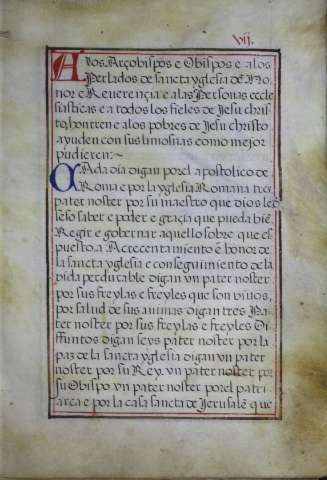 vij.
A los Arçobispos e Obispos e a los
Perlados de sancta yglesia dē Ho
nor e Reuerençia e a las Personas eccle
siasticas e a todos los fieles de Jesu chris
to, honrren e a los pobres de Jesu christo
ayuden con sus limosnas como mejor
pudieren:~
Cada dia digan por el apostolico de
Roma e por la yglesia Romana tres
pater noster por su maestro que dios le
seso saber e poder e graçia que pueda biē
Regir e gobernar aquello sobre que es
puesto, a Acrecentamiento e honor de
la sancta yglesia e conseguimiento de la
bida perdurable digan vn pater noster
por sus freylas e freyles que son viuos,
por salud de sus animas digan tres Pa
ter noster por sus freylas e freyles Di
ffuntos digan seys pater noster por la
pas de la sancta yglesia digan vn pater
noster por su Rey. vn pater noster por
su Obispo vn pater noster por el patri
arca e por la casa sancta de Jerusalē que